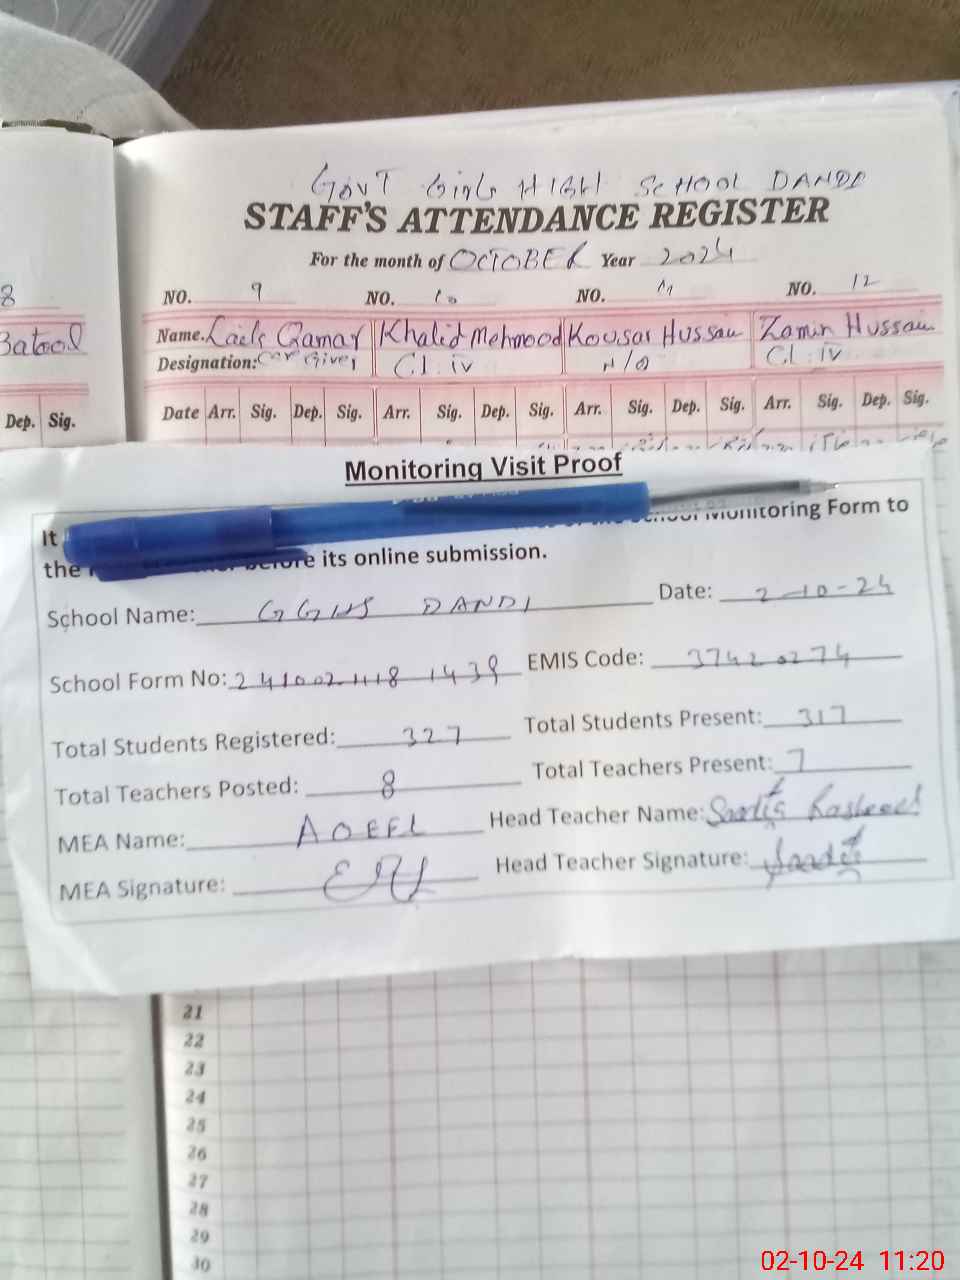 GOVT Girls HIGH SCHOOL DANDI
STAFF'S ATTENDANCE REGISTER
For the month of OCTOBER Year 2024
8 NO. 9 NO. 10 NO. 11 NO. 12
Batool Name. Laila Qamar Khalid Mehmood Kousar Hussain Zamin Hussain
Designation: Care Giver Cl. iv N/Q Cl. iv
Dep. Sig. Date Arr. Sig. Dep. Sig. Arr. Sig. Dep. Sig. Arr. Sig. Dep. Sig. Arr. Sig. Dep. Sig.
Monitoring Visit Proof
It School Monitoring Form to
the before its online submission.
School Name: GGHS DANDI Date: 2-10-24
School Form No: EMIS Code: 37420274
Total Students Registered: 327 Total Students Present: 317
Total Teachers Posted: 8 Total Teachers Present: 7
MEA Name: Head Teacher Name: Sadia
MEA Signature: Head Teacher Signature: Sadia
21
22
23
24
25
26
27
28
29
30
02-10-24 11:20